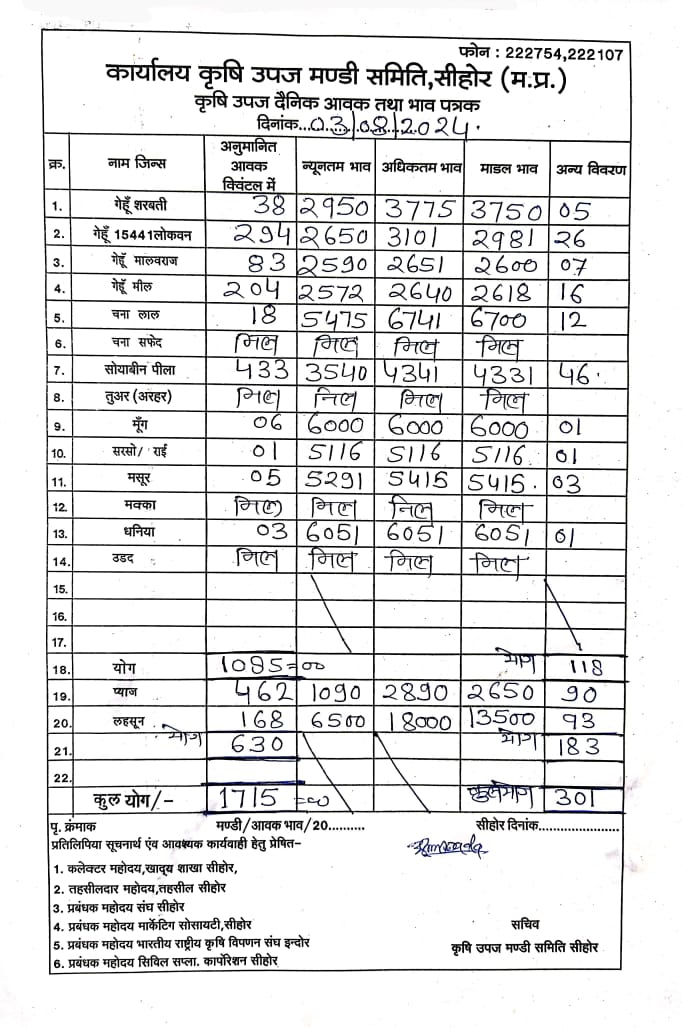 फोन : 222754,222107
कार्यालय कृषि उपज मण्डी समिति,सीहोर (म.प्र.)
कृषि उपज दैनिक आवक तथा भाव पत्रक
दिनांक...03/08/2024.
क्र. नाम जिन्स अनुमानित आवक क्विंटल में न्यूनतम भाव अधिकतम भाव माडल भाव अन्य विवरण
1. गेहूँ शरबती 38 2950 3775 3750 05
2. गेहूँ 15441लोकवन 294 2650 3101 2981 26
3. गेहूँ मालवराज 83 2590 2651 2600 07
4. गेहूँ मील 204 2572 2640 2618 16
5. चना लाल 18 5475 6741 6700 12
6. चना सफेद निल निल निल निल
7. सोयाबीन पीला 433 3540 4341 4331 46.
8. तुअर (अरहर) निल निल निल निल
9. मूँग 06 6000 6000 6000 01
10. सरसो/ राई 01 5116 5116 5116 01
11. मसूर 05 5291 5415 5415. 03
12. मक्का निल निल निल निल
13. धनिया 03 6051 6051 6051 01
14. उडद निल निल निल निल
15.
16.
17.
18. योग 1085=00 योग 118
19. प्याज 462 1090 2890 2650 90
20. लहसून 168 6500 18000 13500 93
21. योग 630 योग 183
22.
कुल योग/- 1715=00 कुलयोग 301
पृ. क्रंमाक मण्डी/आवक भाव/20.......... सीहोर दिनांक.......................
प्रतिलिपिया सूचनार्थ एंव आवश्यक कार्यवाही हेतु प्रेषित-
1. कलेक्टर महोदय,खाद्य शाखा सीहोर,
2. तहसीलदार महोदय,तहसील सीहोर
3. प्रबंधक महोदय संघ सीहोर
4. प्रबंधक महोदय मार्केटिग सोसायटी,सीहोर
5. प्रबंधक महोदय भारतीय राष्ट्रीय कृषि विपणन संघ इन्दोर
6. प्रबंधक महोदय सिविल सप्ला. कार्पोरेशन सीहोर
सचिव
कृषि उपज मण्डी समिति सीहोर